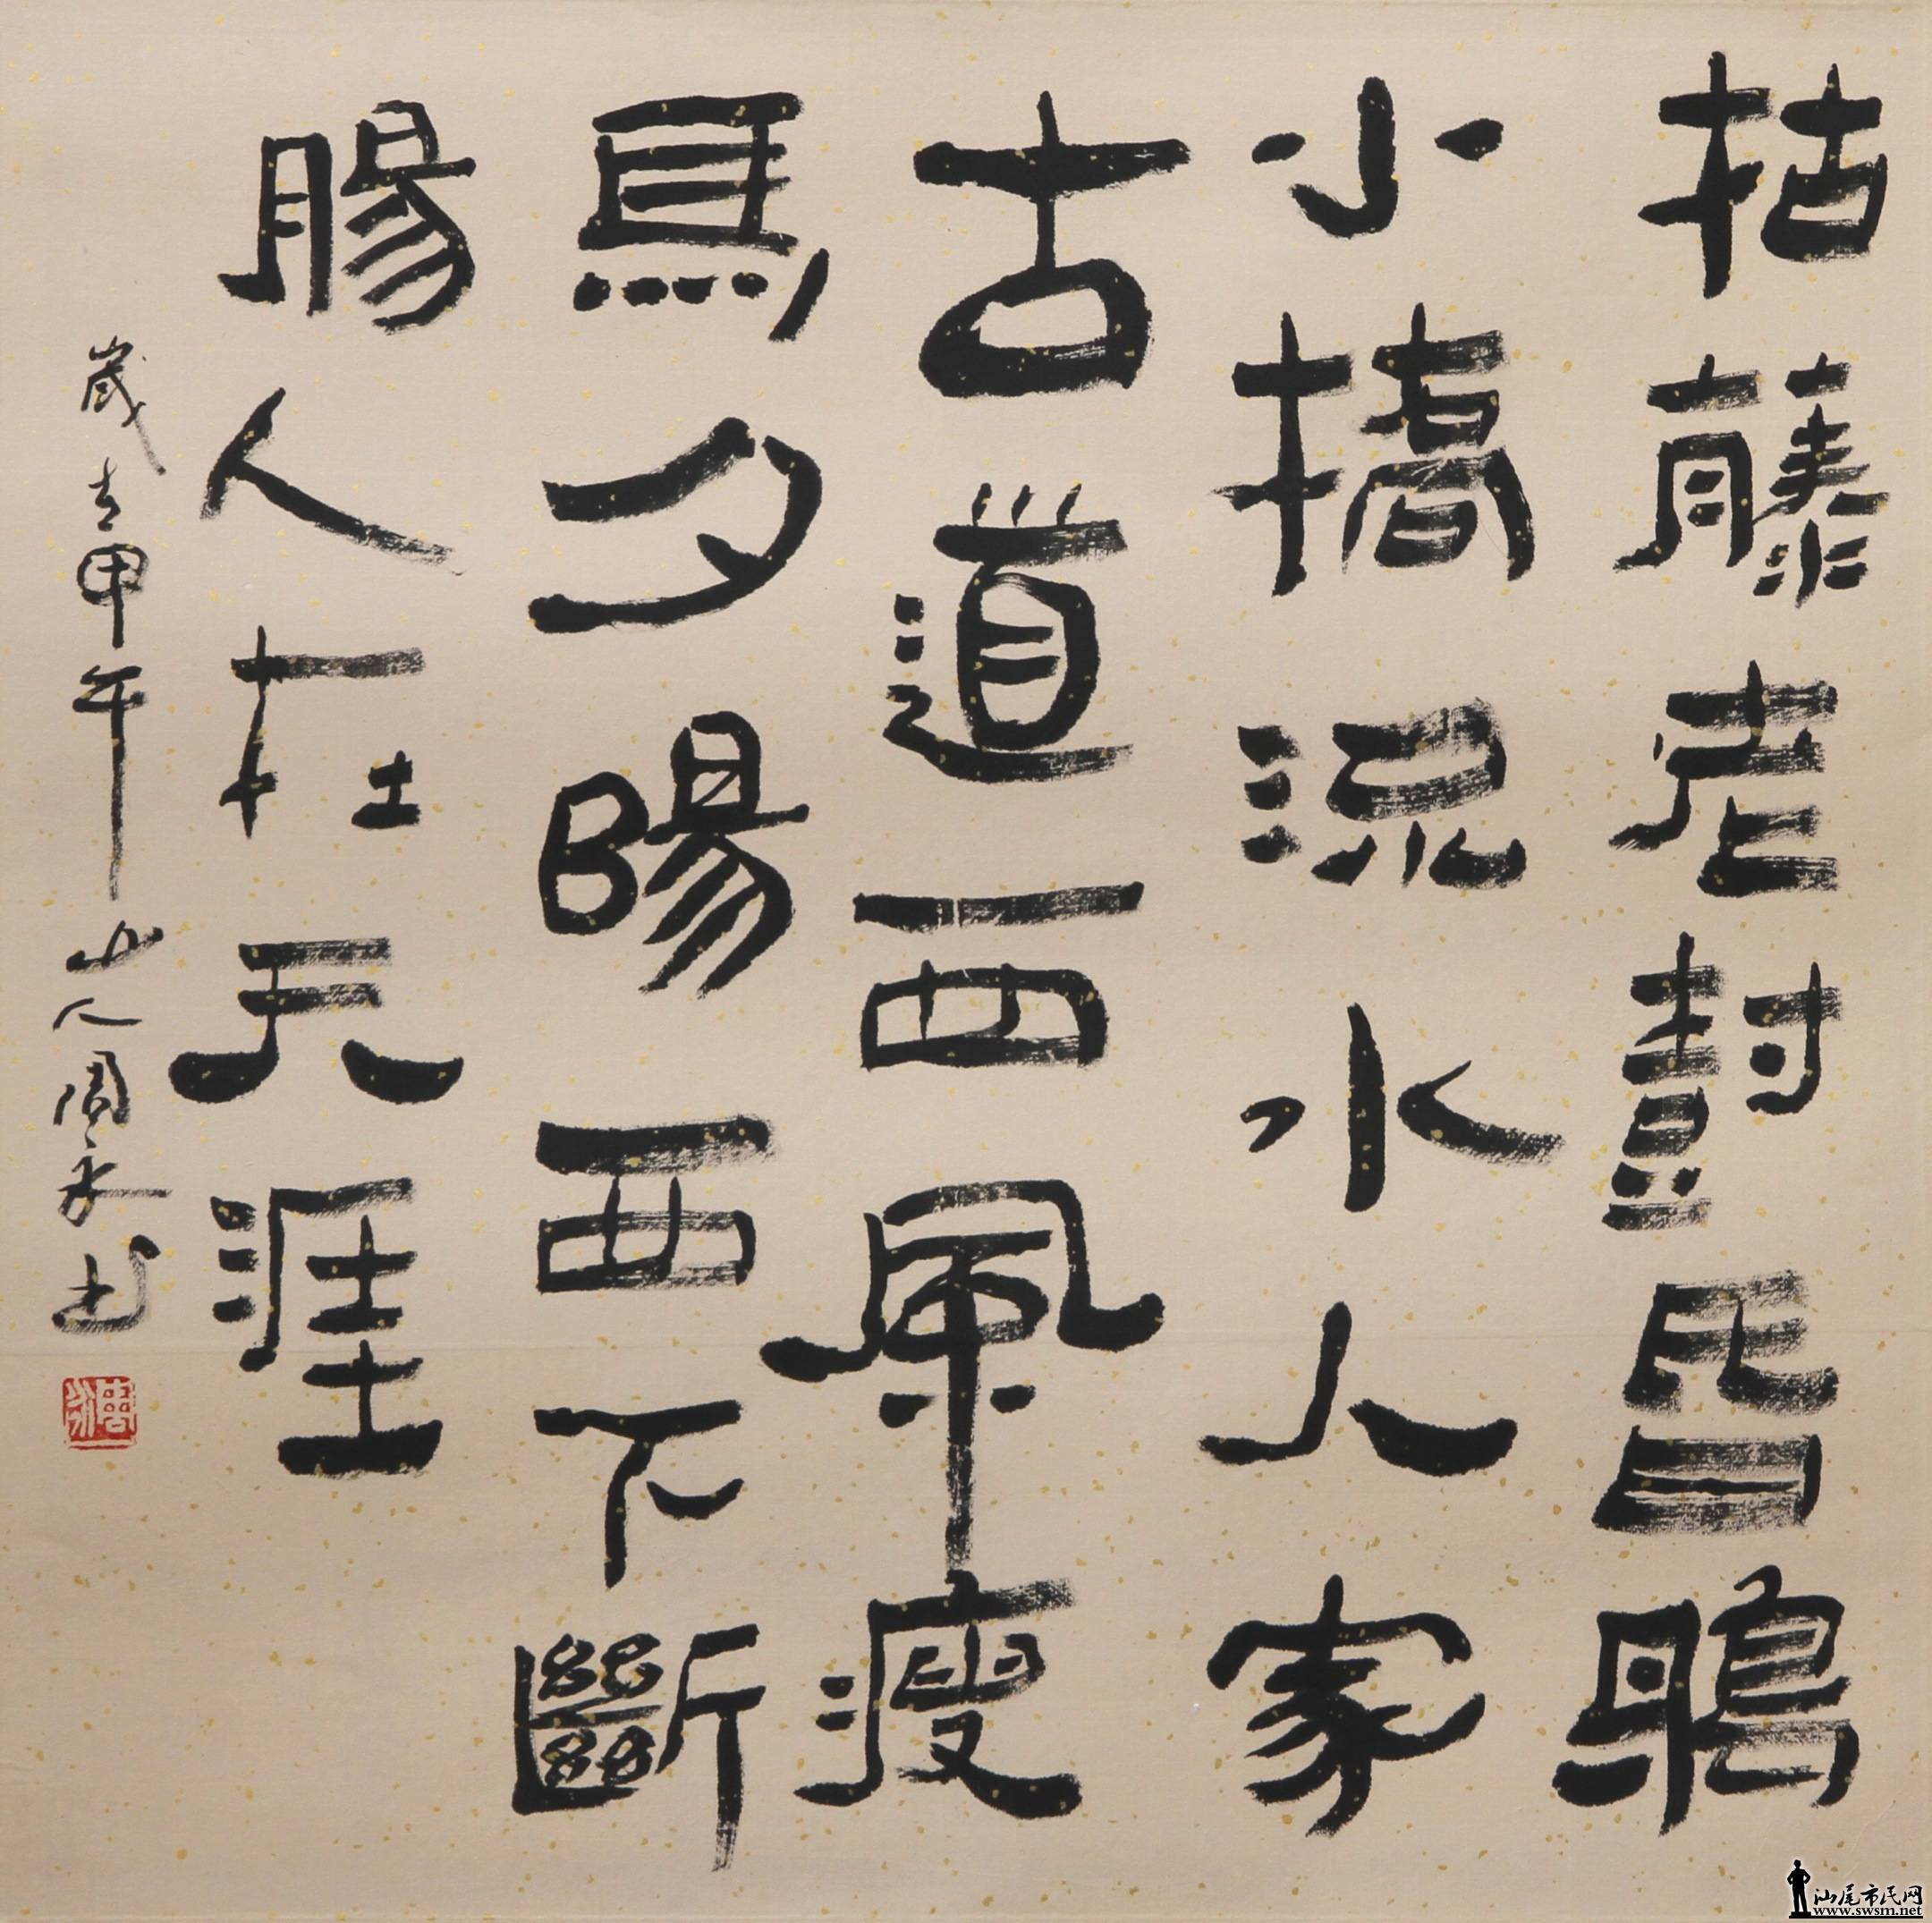 枯藤老尌昏鴉
小橋流水人家
古道西風瘦
馬夕陽西下斷
腸人在天涯
歲在甲午山人周永书
汕尾市民网
www.swsm.net